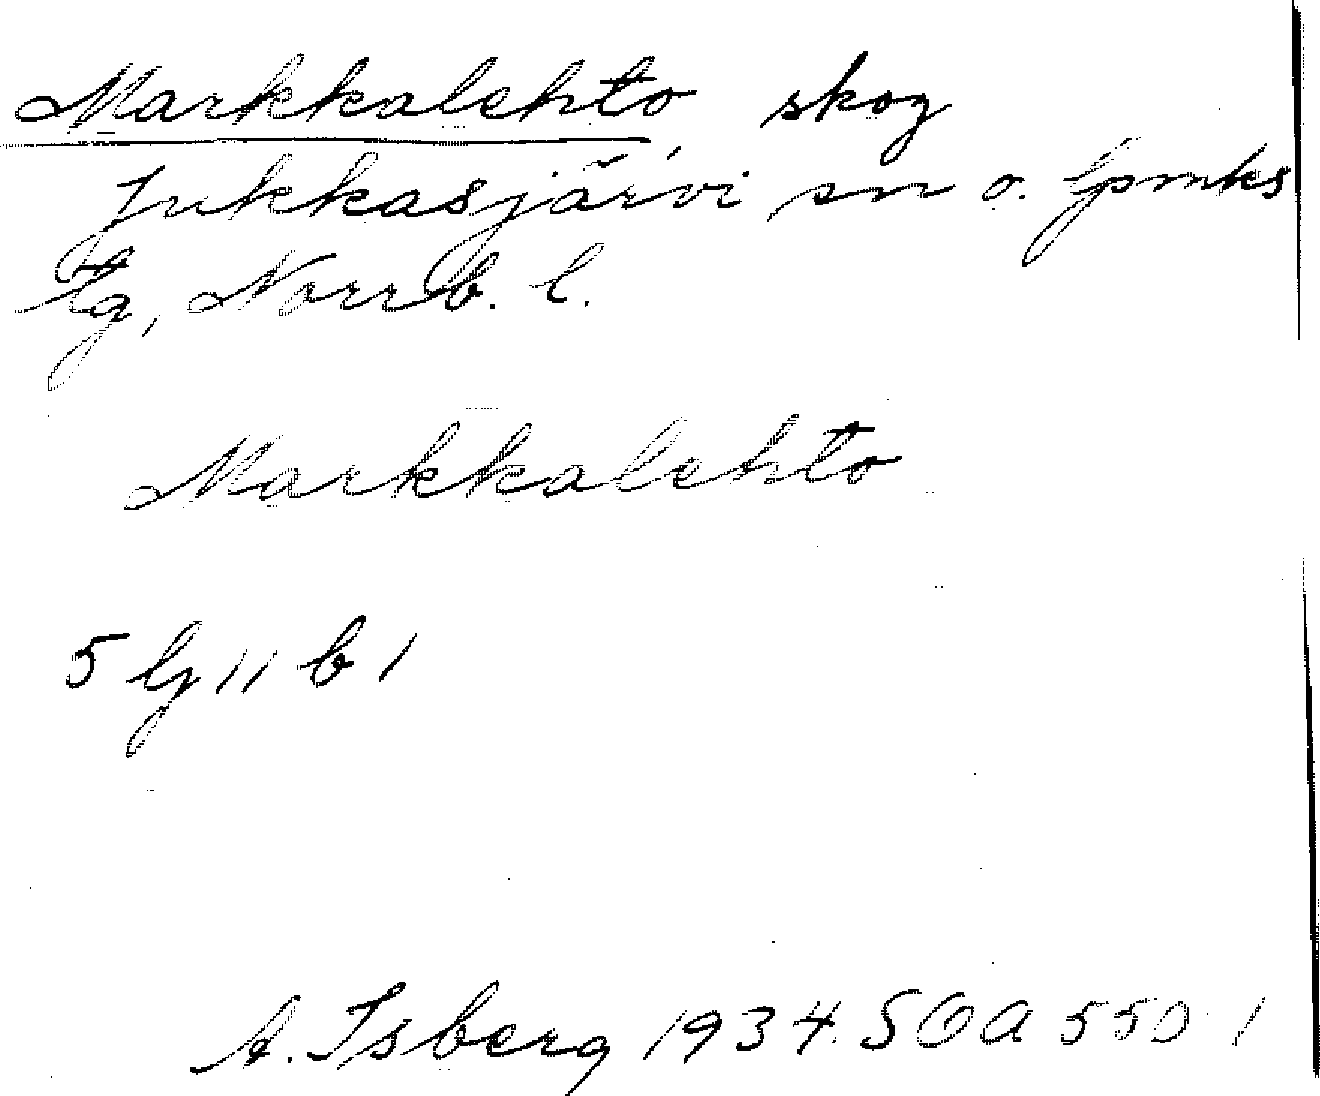 Markkalehto skog
Jukkasjärvi sn o. lpmks
tg, Norrb. l.
Markkalehto
5 lg 11 b 1
A. Isberg 1934. SOA 550 1